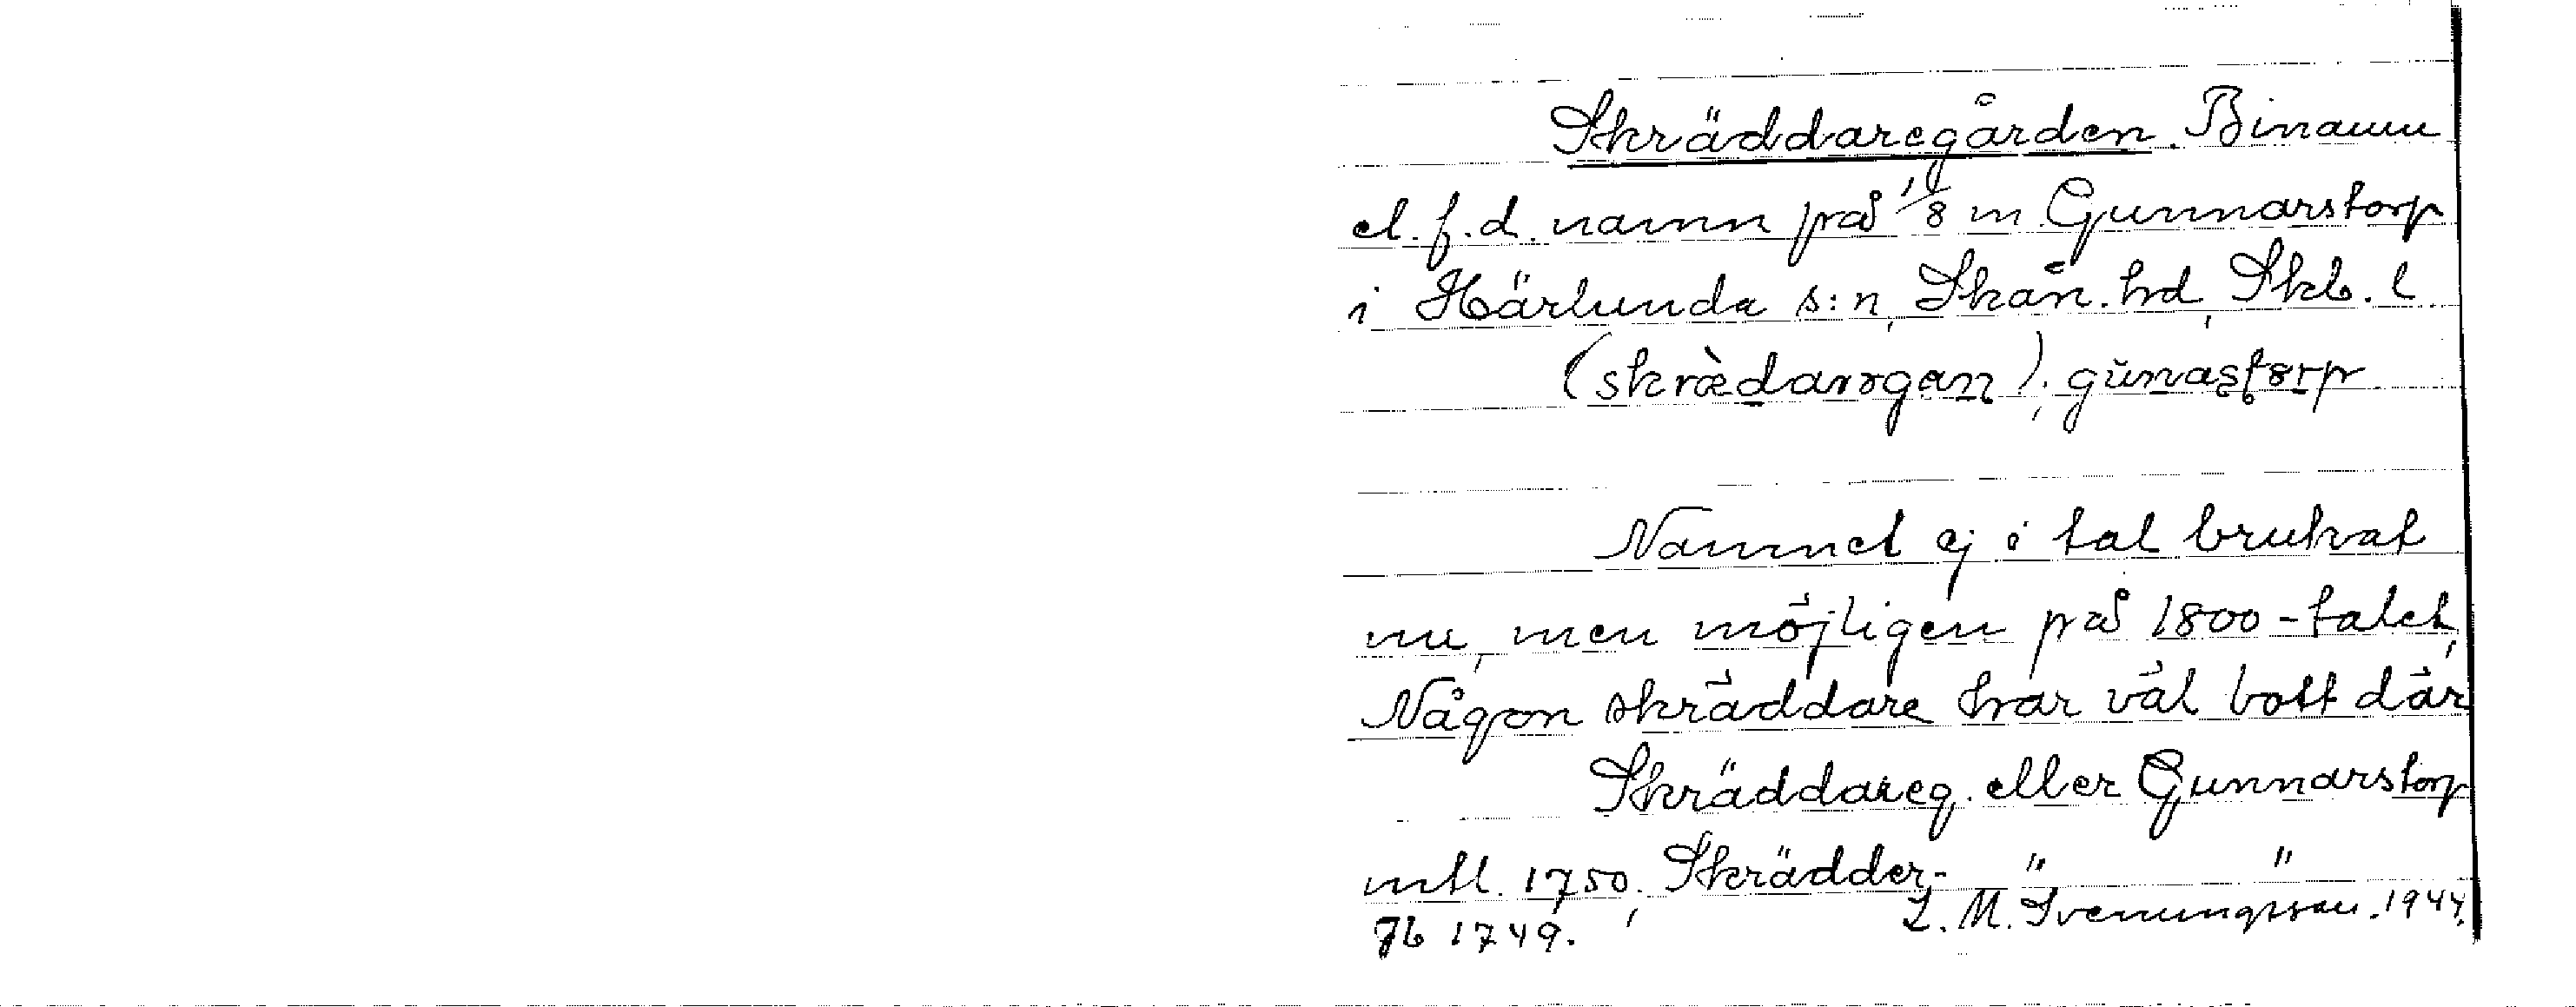 Skräddaregården. Binamn
el. f.d. namn på 1/8 m Gunnarstorp
i Härlunda s:n, Skån. hd, Skb. l
(skrædarǝgan); gŭnastørp
Namnet ej i tal brukat
nu, men möjligen på 1800-talet,
Någon skräddare har väl bott där
Skräddareg. eller Gunnarstorp
mtl. 1750, Skrädder- " "
Jb 1749. L. M. Svenungsson. 1944.